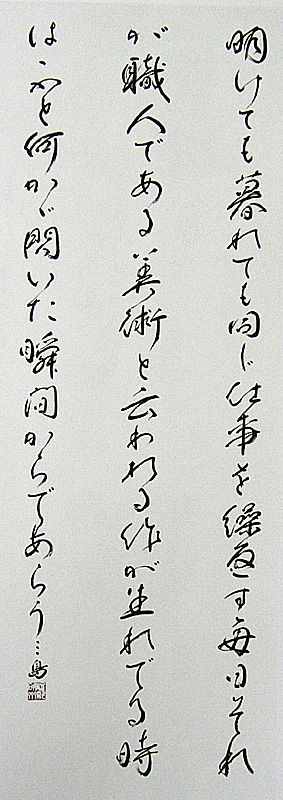 明けても暮れても同じ仕事を繰返す毎日それ
が職人である美術と云われる作が生れでる時
はふと何かゞ閃いた瞬間からであらう…